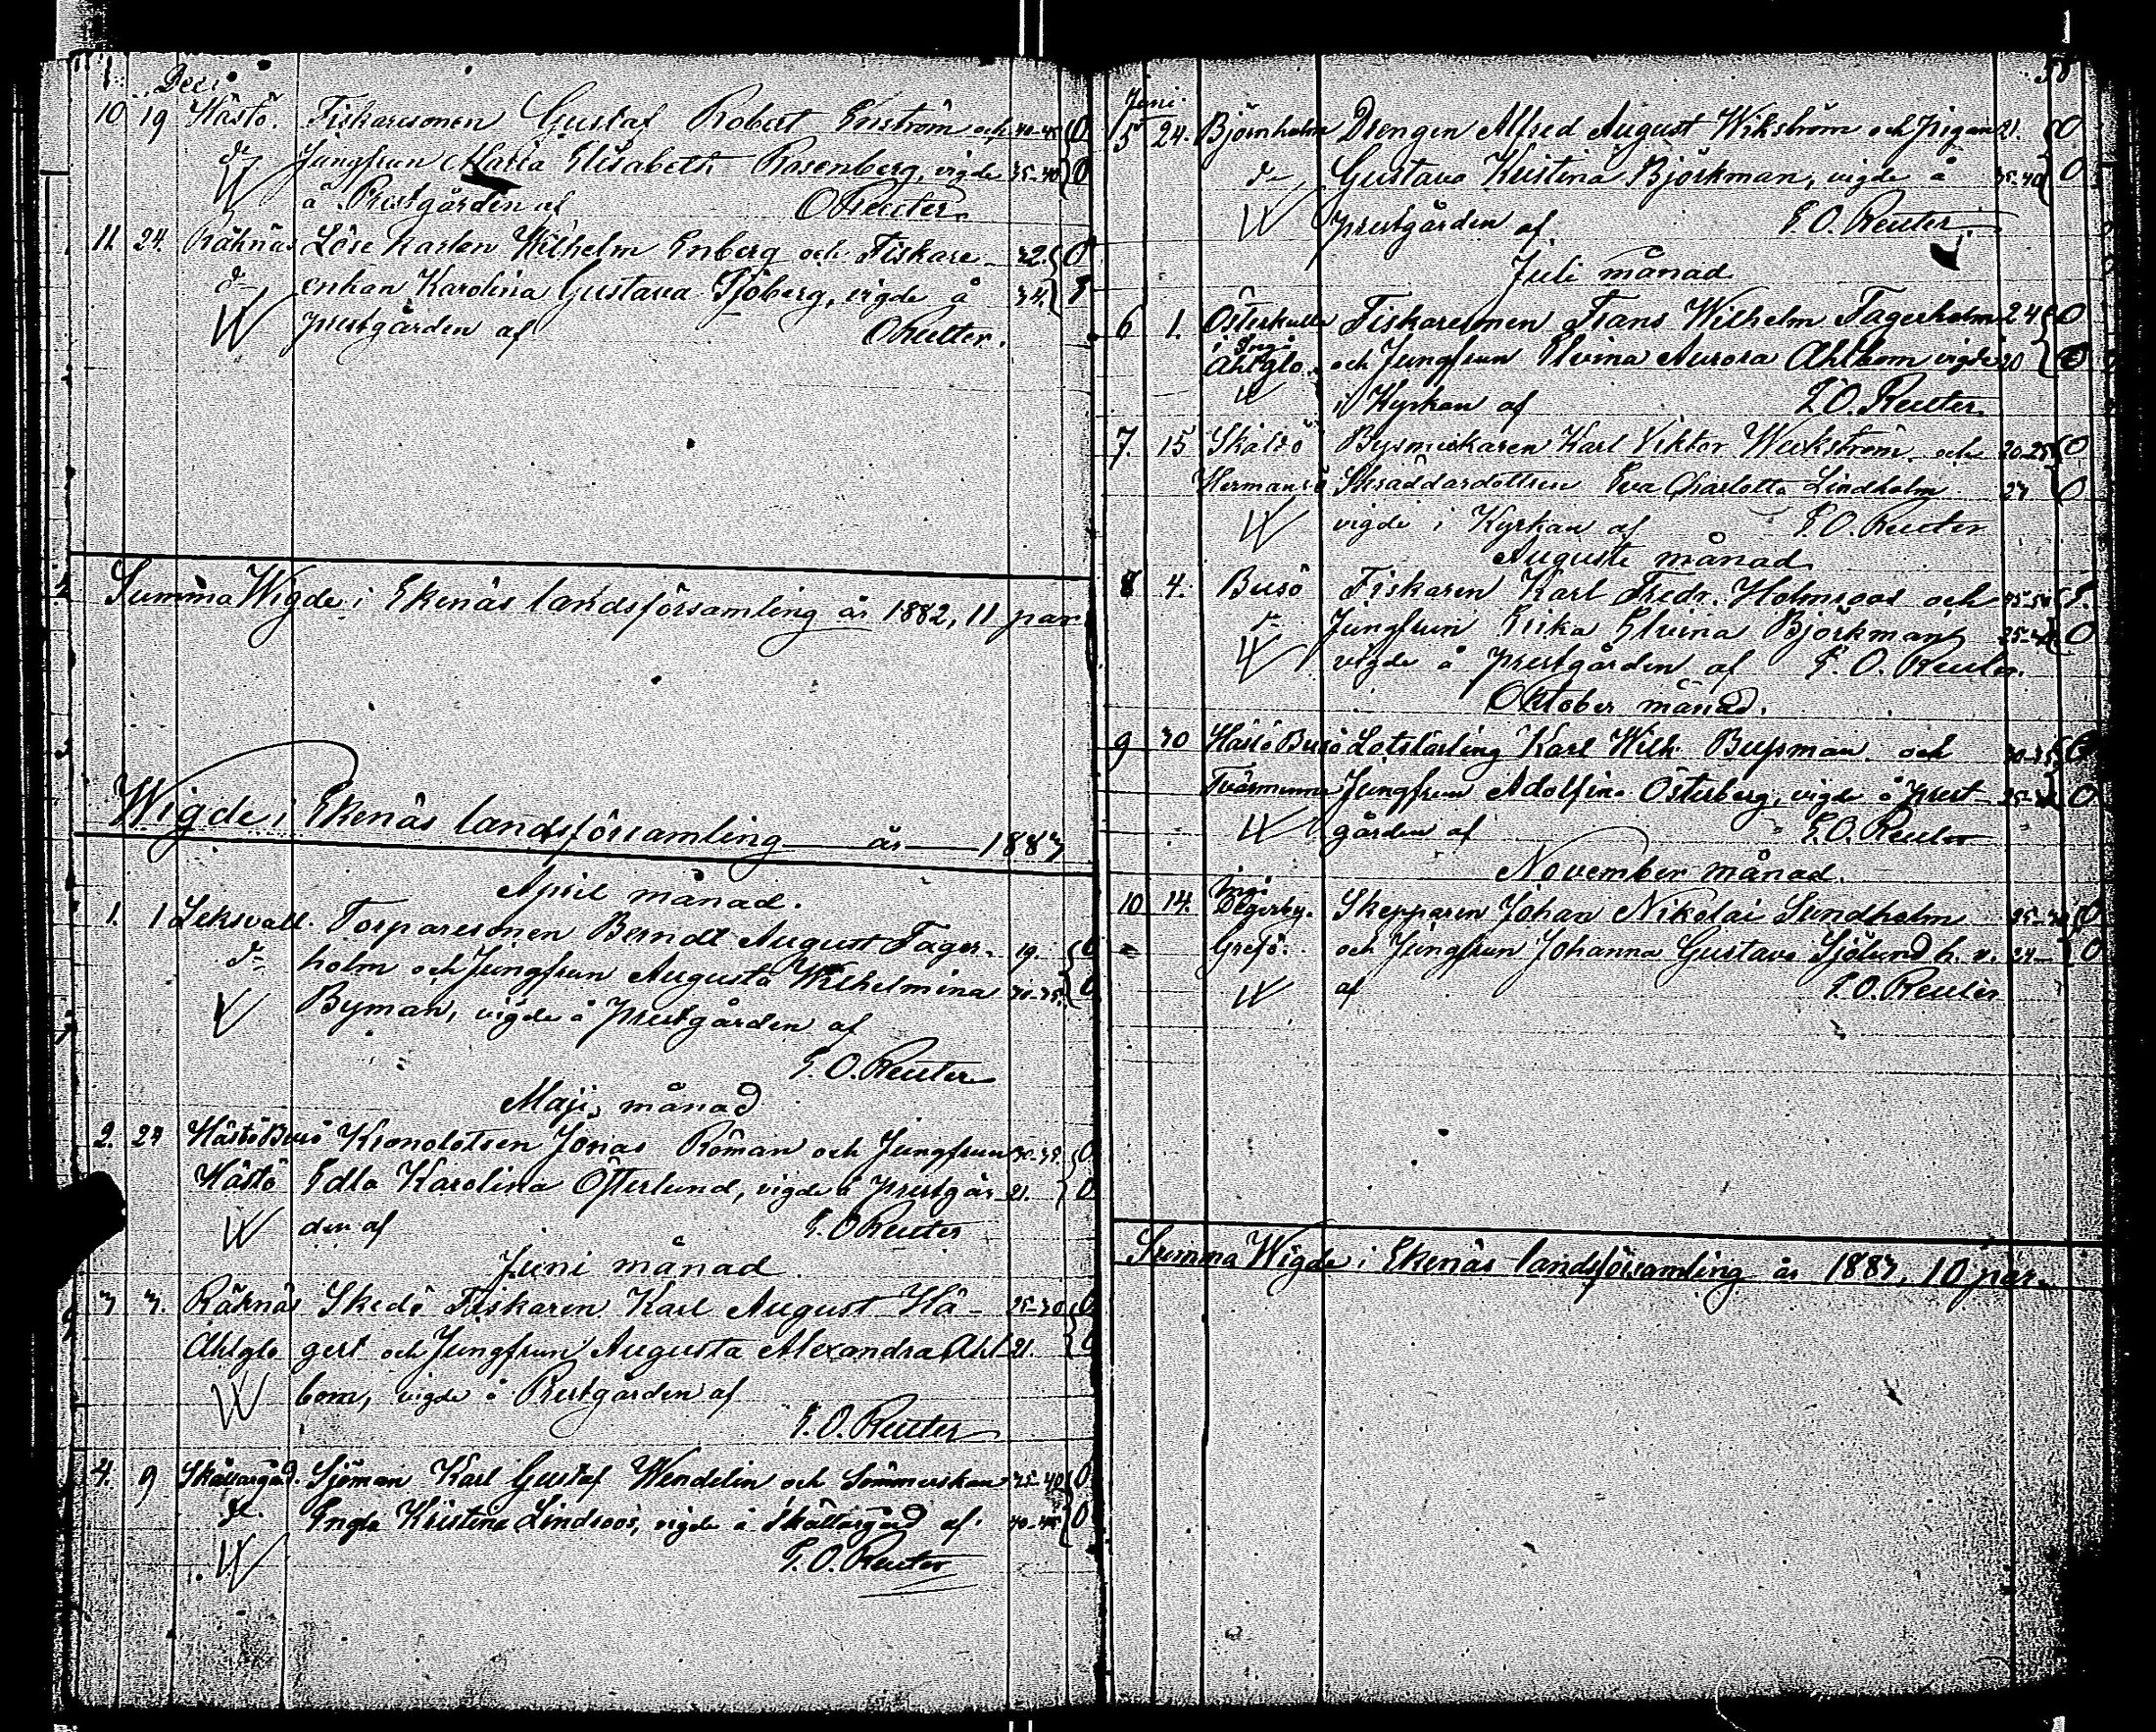 Dec:
10 19 Hästö. Fiskaresonen Gustaf Robert Enström och 40-45 0
d- Jungfrun Maria Elisabeth Rosenberg, vigde 35-40 0
å Prestgården af O Reuter.
11. 24. Räknäs Löse karlen Wilhelm Enberg och Fiskare- 32. 0
d- enkan Karolina Gustava Sjöberg, vigde å 34.
prestgården af O Reuter.
Summa Wigde i Ekenäs landsförsamling år 1882, 11 par
Wigde i Ekenäs landsförsamling år 1883
April månad.
1. 1 Leksvall. Torparesonen Berndt August Fager- 19. 0
d- holm och Jungfrun Augusta Wilhelmina 30-35. 0
Byman, vigde å Prestgården af
E. O. Reuter
Maji månad
2. 23 Hästö Busö Kronolotsen Jonas Röman och Jungfrun 0
Hästö Edla Karolina Österlund, vigde å prestgår- 21. 0
den af E. O Reuter
Juni månad
3 3. Räknäs Skedö Fiskaren Karl August Hä- 25-30 0
Ahlglo gert och Jungfrun Augusta Alexandra Ahl- 21. 0
bom, vigde å Prestgården af
E. O. Reuter
4. 9 Skåttargård. Sjöman Karl Gustaf Wendelin och Sömmerskan 35-40 0
d-. Enga Kristina Lindroos, vigde å Skåttargård af. 40-45 0
E. O. Reuter
Juni.
5 24. Björnholm Drengen Alfred August Wikström och pigan 21. 0
d- Gustava Kristina Björkman, vigde å 35-40 0
prestgården af E. O. Reuter.
Juli månad
6 1. Österkulla Fiskaresonen Frans Wilhelm Fagerholm 24 0
i Ingå
Ahlglo. och Jungfrun Elvina Aurora Ahlbom vigde 20 0
i Kyrkan af E. O. Reuter.
7. 15 Skåldö Bysmickaren Karl Viktor Weckström och 20-25 0
Hermansö Skräddardottren Eva Charlotta Lindholm 23 0
vigde i Kyrkan af E. O. Reuter
Augusti månad
8 4. Busö Fiskaren Karl Fredr. Holmroos och 45-50
d- Jungfrun Erika Elvina Björkman 0
vigde å prestgården af E. O. Reuter.
Oktober månad.
9 30 Hästö Busö Lotslärling Karl Wilh. Bussman och 30-35 0
Tvärminne Jungfrun Adolfina Österberg, vigde å prest- 0
gården af E. O. Reuter
November månad.
10 14. Ingå
Degerby. Skepparen Johan Nikolai Sundholm 25-30 0
Grefö: och Jungfrun Johanna Gustava Sjölund h. v. 0
af E. O. Reuter
Summa Wigde i Ekenäs landsförsamling år 1883, 10 par.